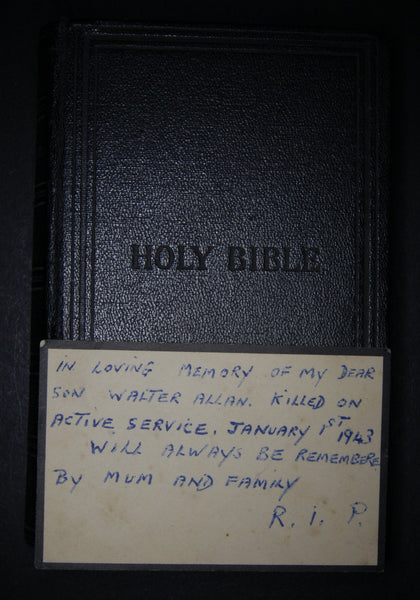 HOLY BIBLE
IN LOVING MEMORY OF MY DEAR
SON WALTER ALLAN. KILLED ON
ACTIVE SERVICE. JANUARY 1ST 1943
WILL ALWAYS BE REMEMBERE
BY MUM AND FAMILY
R. I. P.